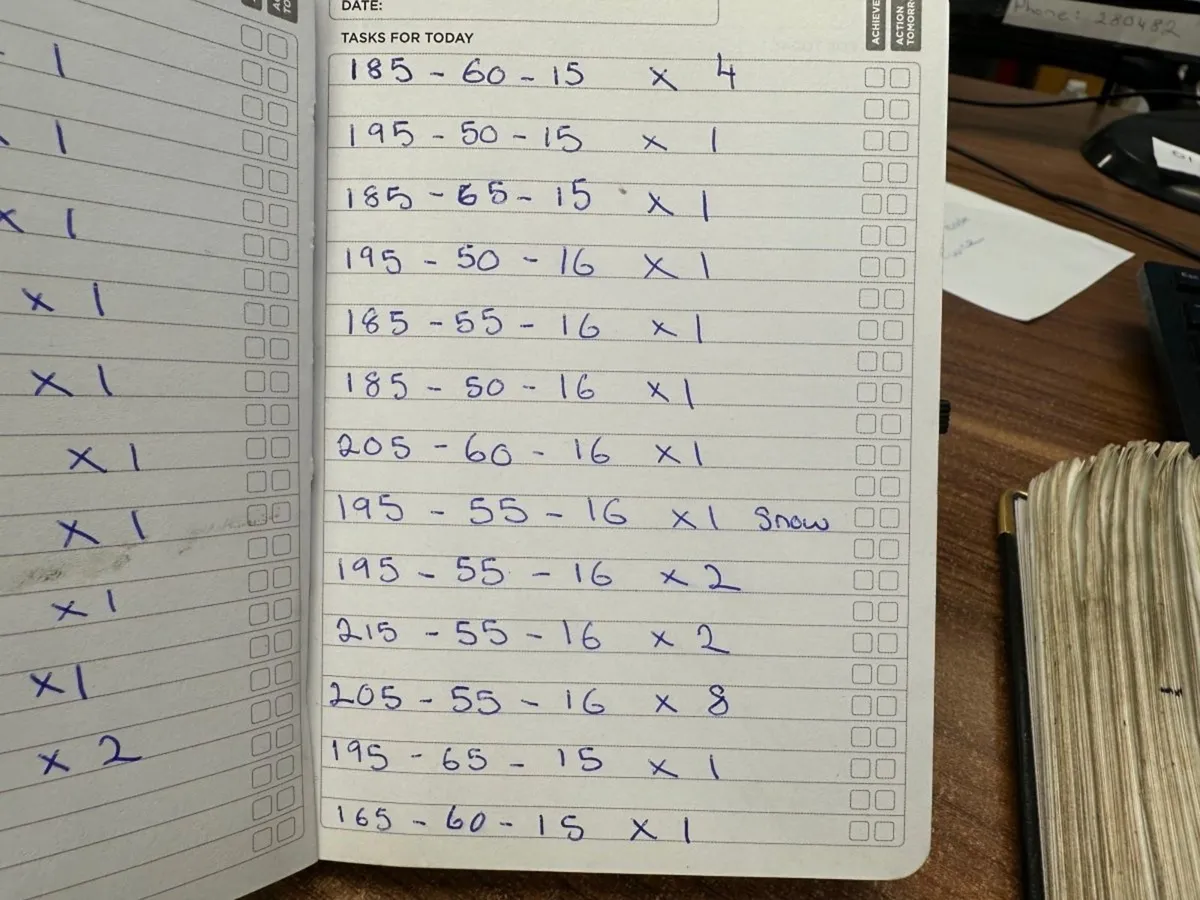 1
1
x 1
x 1
x 1
x 1
x 1
x 1
x 1
x 2
DATE:
TASKS FOR TODAY
ACHIEVE
ACTION
TOMORR
185 - 60 - 15 x 4
195 - 50 - 15 x 1
185 - 65 - 15 x 1
195 - 50 - 16 x 1
185 - 55 - 16 x 1
185 - 50 - 16 x 1
205 - 60 - 16 x 1
195 - 55 - 16 x 1 Snow
195 - 55 - 16 x 2
215 - 55 - 16 x 2
205 - 55 - 16 x 8
195 - 65 - 15 x 1
165 - 60 - 15 x 1
Phone: 280482